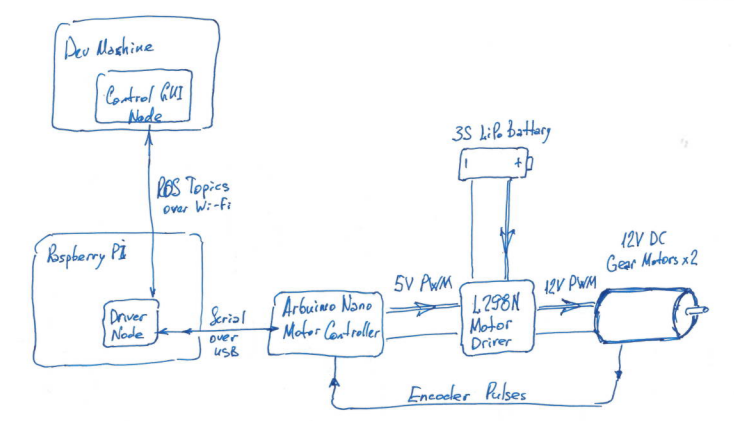 Dev Machine
Control GUI
Node
ROS Topics
over Wi-Fi
Raspberry Pi
Driver
Node
Serial
over
USB
Arduino Nano
Motor Controller
5V PWM
3S LiPo Battery
- +
L298N
Motor
Driver
12V PWM
12V DC
Gear Motors x2
Encoder Pulses